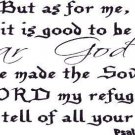 But as for me,
it is good to be
ar God
e made the Sov
ORD my refug
tell of all your
Psal